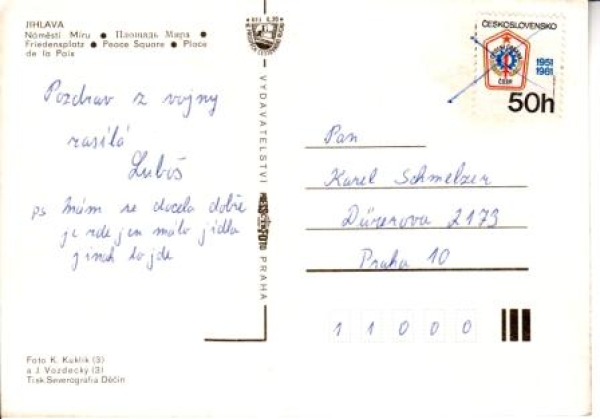 JIHLAVA
Náměstí Míru ● Площадь Мира ●
Friedensplatz ● Peace Square ● Place
de la Paix
ČESKOSLOVENSKO
1951
1981
ČSSR
50h
Pozdrav z vojny
zasílá
Luboš
ps Mám se docela dobře
je zde jen málo jídla
jinak to jde
VYDAVATELSTVÍ
PRAHA
Pan
Karel Schmelzer
Dürerova 2173
Praha 10
11000
Foto K. Kuklík (3)
a J. Vozdecký (3)
Tisk Severografia Děčín